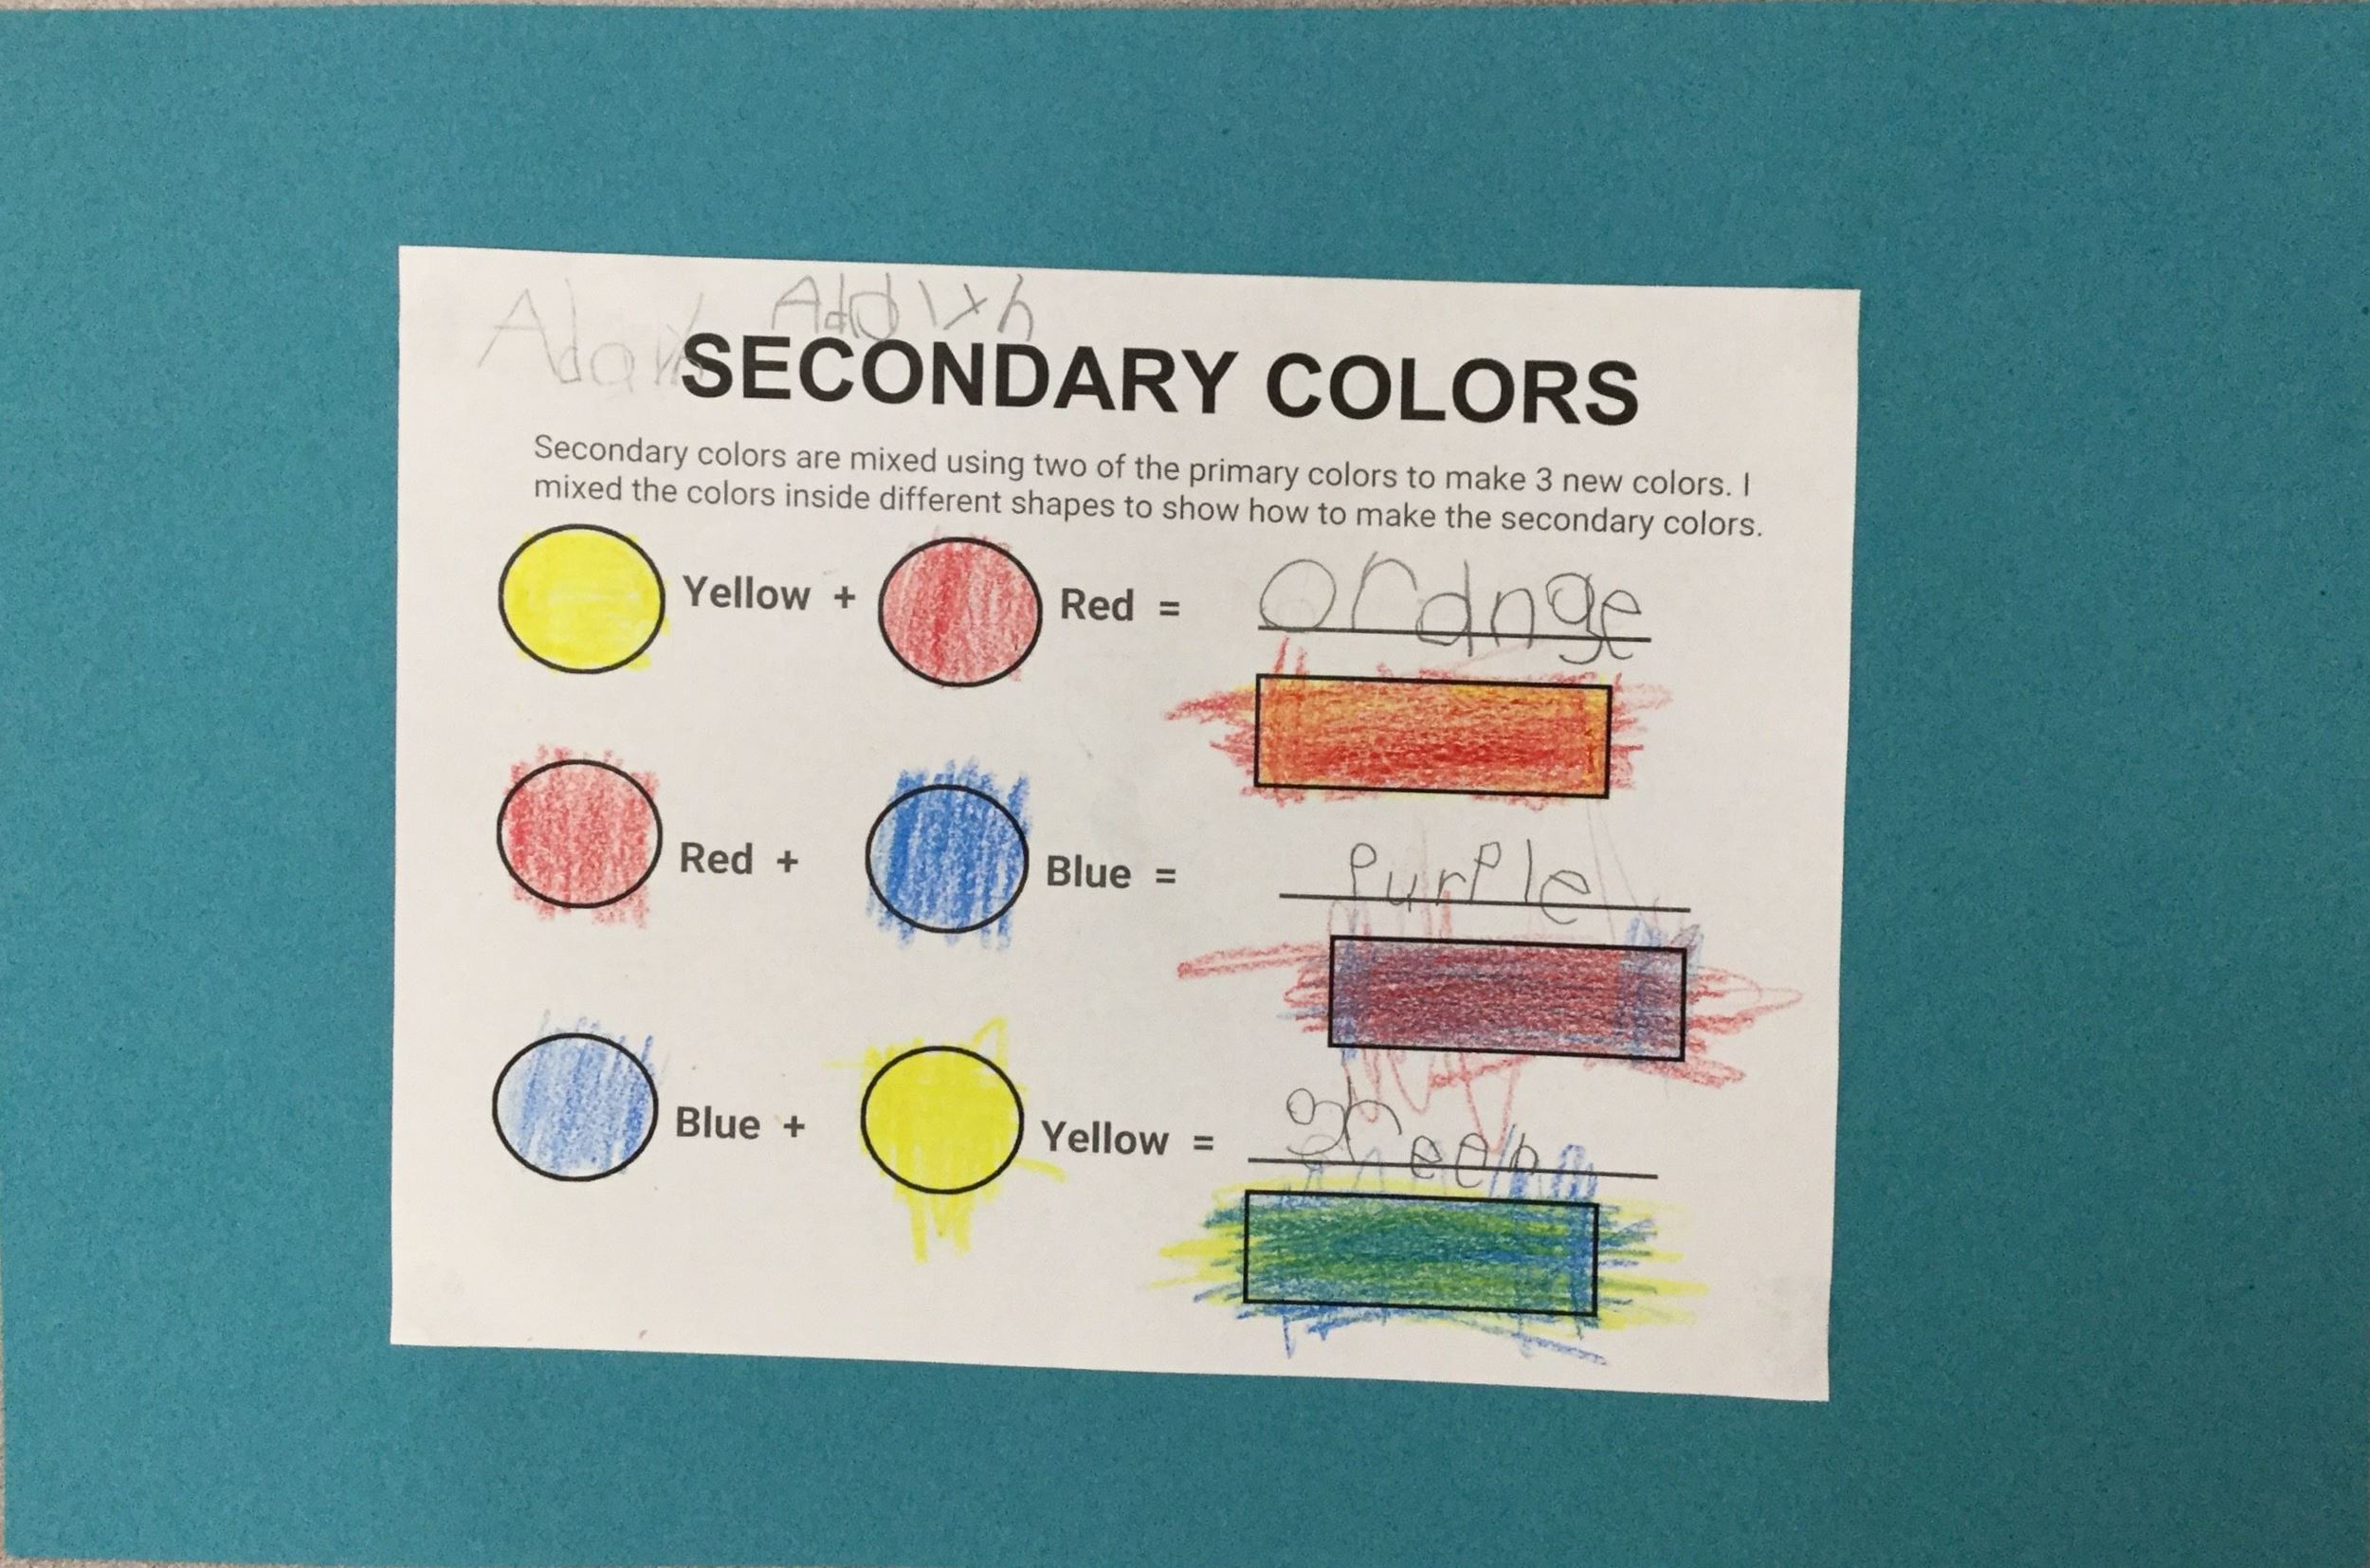 SECONDARY COLORS
Secondary colors are mixed using two of the primary colors to make 3 new colors. I
mixed the colors inside different shapes to show how to make the secondary colors.
Yellow + Red = orange
Red + Blue = purple
Blue + Yellow = green